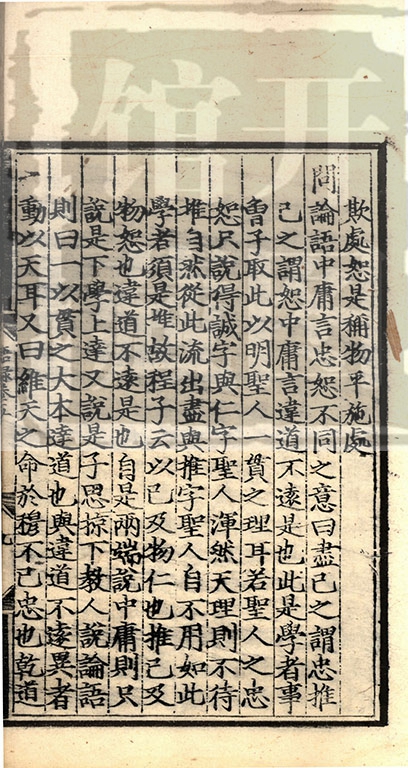 欺處恕是稱物平施處
問論語中庸言忠恕不同之意曰盡己之謂忠推
己之謂恕中庸言違道不遠是也此是學者事
曾子取此以明聖人一貫之理耳若聖人之忠
恕只說得誠字與仁字聖人渾然天理則不待
推自然從此流出盡與推字聖人自不用如此
學者須是推故程子云以己及物仁也推己及
物恕也違道不遠是也自是兩端說中庸則只
說是下學上達又說是子思掠下教人說論語
則曰一以貫之大本達道也與違道不遠異者
動以天耳又曰維天之命於穆不已忠也乾道